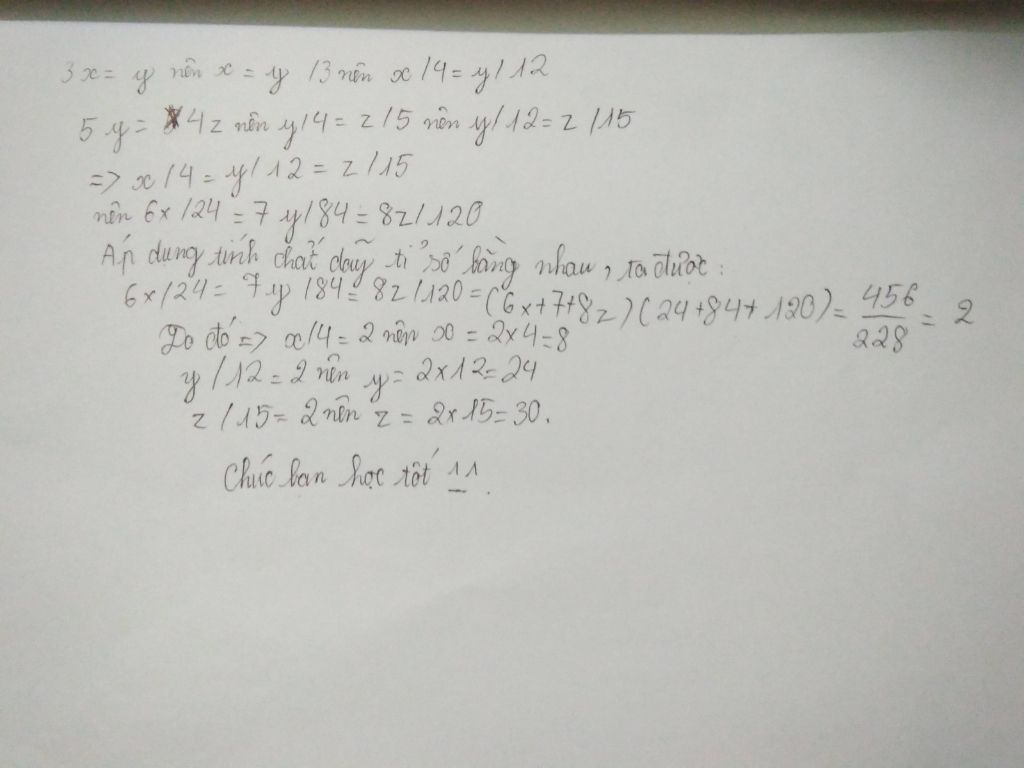 3x = y nên x = y /3 nên x /4 = y / 12
5 y = 4z nên y/4 = z /5 nên y/ 12 = z /15
=> x /4 = y/ 12 = z /15
nên 6x /24 = 7 y /84 = 8z/120
Áp dụng tính chất dãy tỉ số bằng nhau, ta được:
6x /24 = 7y /84 = 8z /120 = (6x+7+8z)(24+84+120) = 456/228 = 2
Do đó => x/4 = 2 nên x = 2x4=8
y /12 = 2 nên y = 2x12=24
z /15 = 2 nên z = 2x15=30.
Chúc bạn học tốt